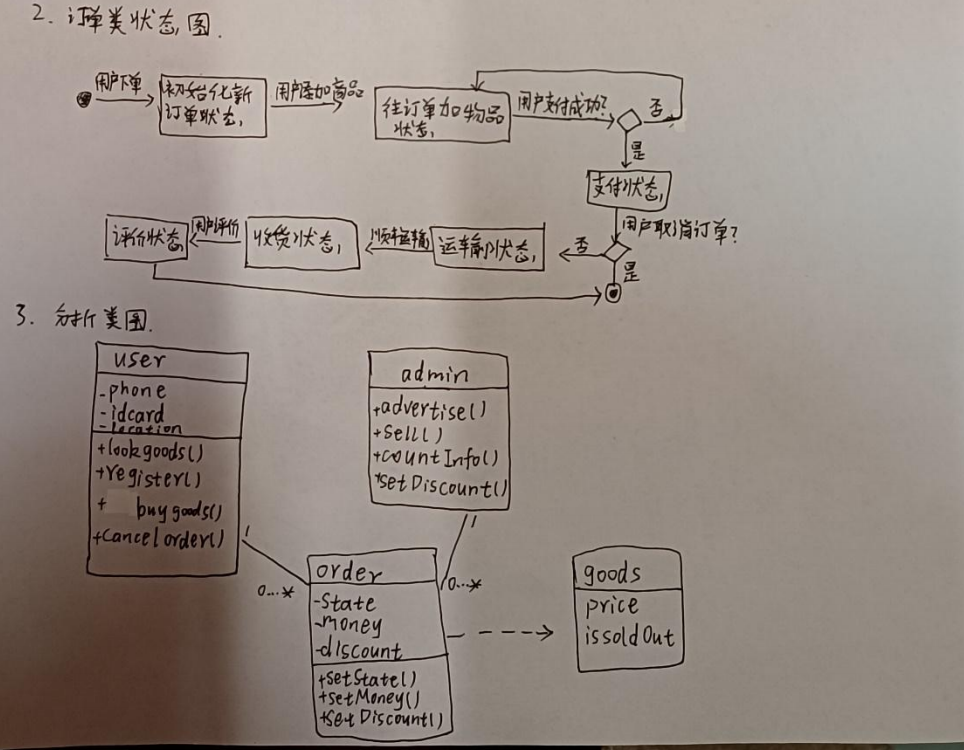 2. 订单类状态图.
用户下单
初始化新
订单状态
用户添加商品
往订单加物品
状态
用户支付成功?
否
是
支付状态
用户取消订单?
否
是
运输状态
顺利运输
收货状态
用户评价
评价状态
3. 分析类图.
user
-phone
-idcard
-location
+lookgoods()
+register()
+ buygoods()
+cancelorder()
1
0...*
admin
+advertise()
+sell()
+countInfo()
+setDiscount()
1
0...*
order
-state
-money
-discount
+setState()
+setMoney()
+setDiscount()
goods
price
issoldOut